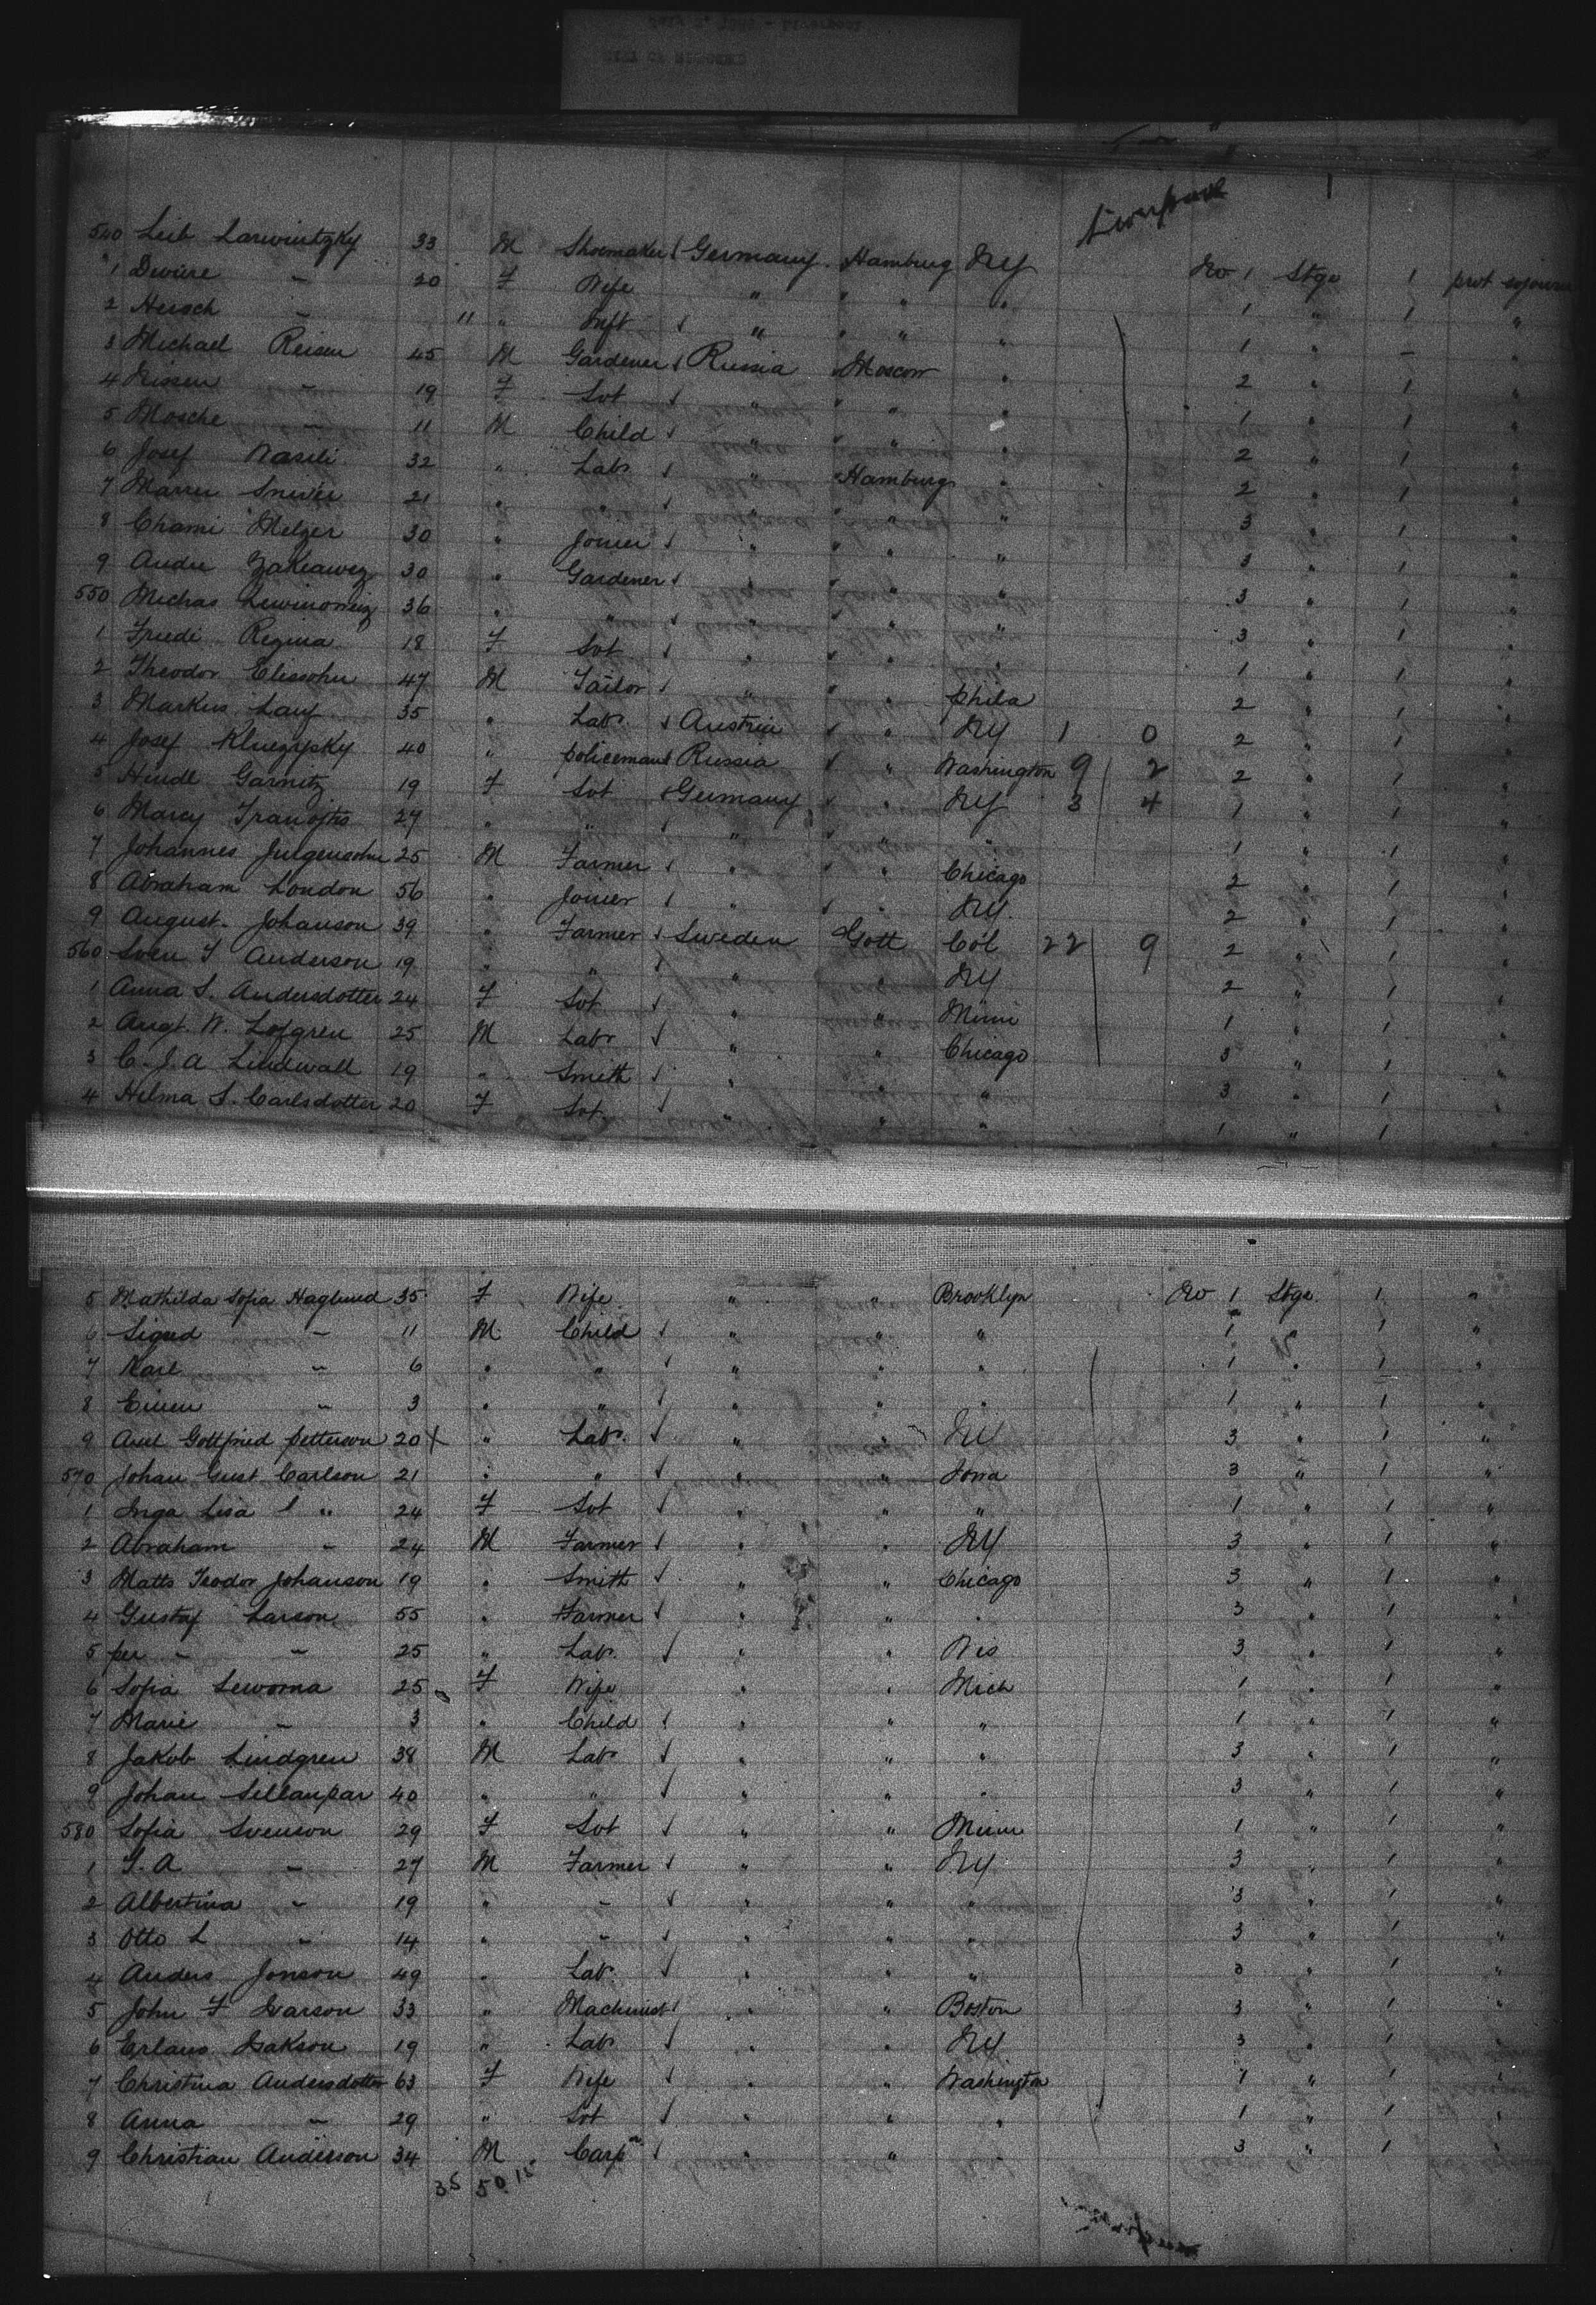 Liverpool
540 Leib Larwintzky 33 M Shoemaker Germany Hamburg NY No 1 Stge 1 prot sojourn
1 Dwire - 20 F Wife " " " " 1 " 1 "
2 Hersch - 11 " Inft " " " " 1 " - "
3 Michael Reisen 45 M Gardener Russia Moscow " 2 " 1 "
4 Nissen - 19 F Svt " " " 1 " 1 "
5 Mosche - 11 M Child " " " 2 " 1 "
6 Josef Wasili 32 " Labr " Hamburg " 2 " 1 "
7 21 " " " " " 3 " 1 "
8 Chami Melzer 30 " Joiner " " " 3 " 1 "
9 Andre 30 " Gardener " " " 3 " 1 "
550 Michas 36 " " " " " 3 " 1 "
1 Friedi Regina 18 F Svt " " " 1 " 1 "
2 Theodor Elissohn 47 M Tailor " " Phila 2 " 1 "
3 Markus Lauf 35 " Labr Austria " NY 1 0 2 " 1 "
4 Josef 40 " Policeman Russia " Washington 9 2 2 " 1 "
5 Hindl Garnitz 19 F Svt Germany " NY 3 4 1 " 1 "
6 Marcy 27 " " " " " 1 " 1 "
7 Johannes Jurgensohn 25 M Farmer " " Chicago 2 " 1 "
8 Abraham London 56 " Joiner " " NY. 2 " 1 "
9 August. Johanson 39 " Farmer Sweden Gott Col 22 9 2 " 1 "
560 Sven J Anderson 19 " " " " NY 2 " 1 "
1 Anna S. Andersdotter 24 F Svt " " Minn 1 " 1 "
2 Augt. W. Lofgren 25 M Labr " " Chicago 3 " 1 "
3 C. J. A Lindwall 19 " Smith " " " 3 " 1 "
4 Hilma S. Carlsdotter 20 F Svt. " " " 1 " 1 "
5 Mathilda Sofia Haglund 35 F Wife " " Brooklyn No 1 Stge 1 "
6 Sigred - 11 M Child " " " 1 " 1 "
7 Karl - 6 " " " " " 1 " 1 "
8 Einen - 3 " " " " " 1 " 1 "
9 Axel Gottfried Petterson 20 " Labr. " " NY 3 " 1 "
570 Johan Gust Carlson 21 " " " " Iowa 3 " 1 "
1 Inga Lisa " 24 F Svt " " " 1 " 1 "
2 Abraham - 24 M Farmer " " NY 3 " 1 "
3 Matts Teodor Johanson 19 " Smith " " Chicago 3 " 1 "
4 Gustaf Larson 55 " Farmer " " " 3 " 1 "
5 Per - - 25 " Labr. " " Wis 3 " 1 "
6 Sofia 25 F Wife " " Mich 1 " 1 "
7 Marie - 3 " Child " " " 1 " 1 "
8 Jakob Lindgren 38 M Labr " " " 3 " 1 "
9 Johan 40 " " " " " 3 " 1 "
580 Sofia Svenson 29 F Svt " " Minn 1 " 1 "
1 J. A - 27 M Farmer " " NY 3 " 1 "
2 Albertina - 19 " - " " " 3 " 1 "
3 Otto L - 14 " - " " " 3 " 1 "
4 Anders Jonson 49 " Labr. " " " 3 " 1 "
5 John F Ivarson 33 " Machinist " " Boston 3 " 1 "
6 Isakson 19 " Labr. " " NY 3 " 1 "
7 Christina Andersdotter 63 F Wife " " Washington 1 " 1 "
8 Anna - 29 " Svt " " " 1 " 1 "
9 Christian Anderson 34 M Carp " " " 3 " 1 "
35 50 15